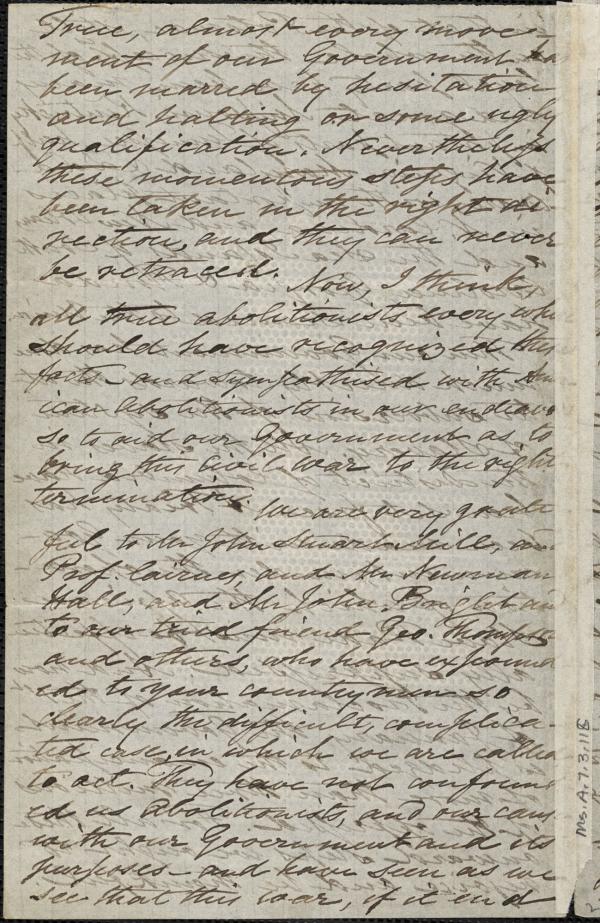 True, almost every move-
ment of our Government has
been marred by hesitation
and halting or some ugly
qualification. Nevertheless
these momentous steps have
been taken in the right di
rection, and they can never
be retraced.
Now, I think,
all true abolitionists every whe
should have recognized these
facts - and sympathised with Am
ican abolitionists in our endeavo
so to aid our Government as to
bring this Civil war to the right
termination.
We are very grate
ful to Mr John Stuart Mill, and
Prof. Cairnes, and Mr Newman
Hall, and Mr John Bright an
to our tried friend Geo. Thompson
and others, who have expound
ed to your countrymen so
clearly the difficult, complica-
ted case, in which we are called
to act. They have not confoun
ed us abolitionists, and our cause
with our Government and its
purposes - and have seen as we
see that this war, if it end
Ms. A. 7. 3. 11B